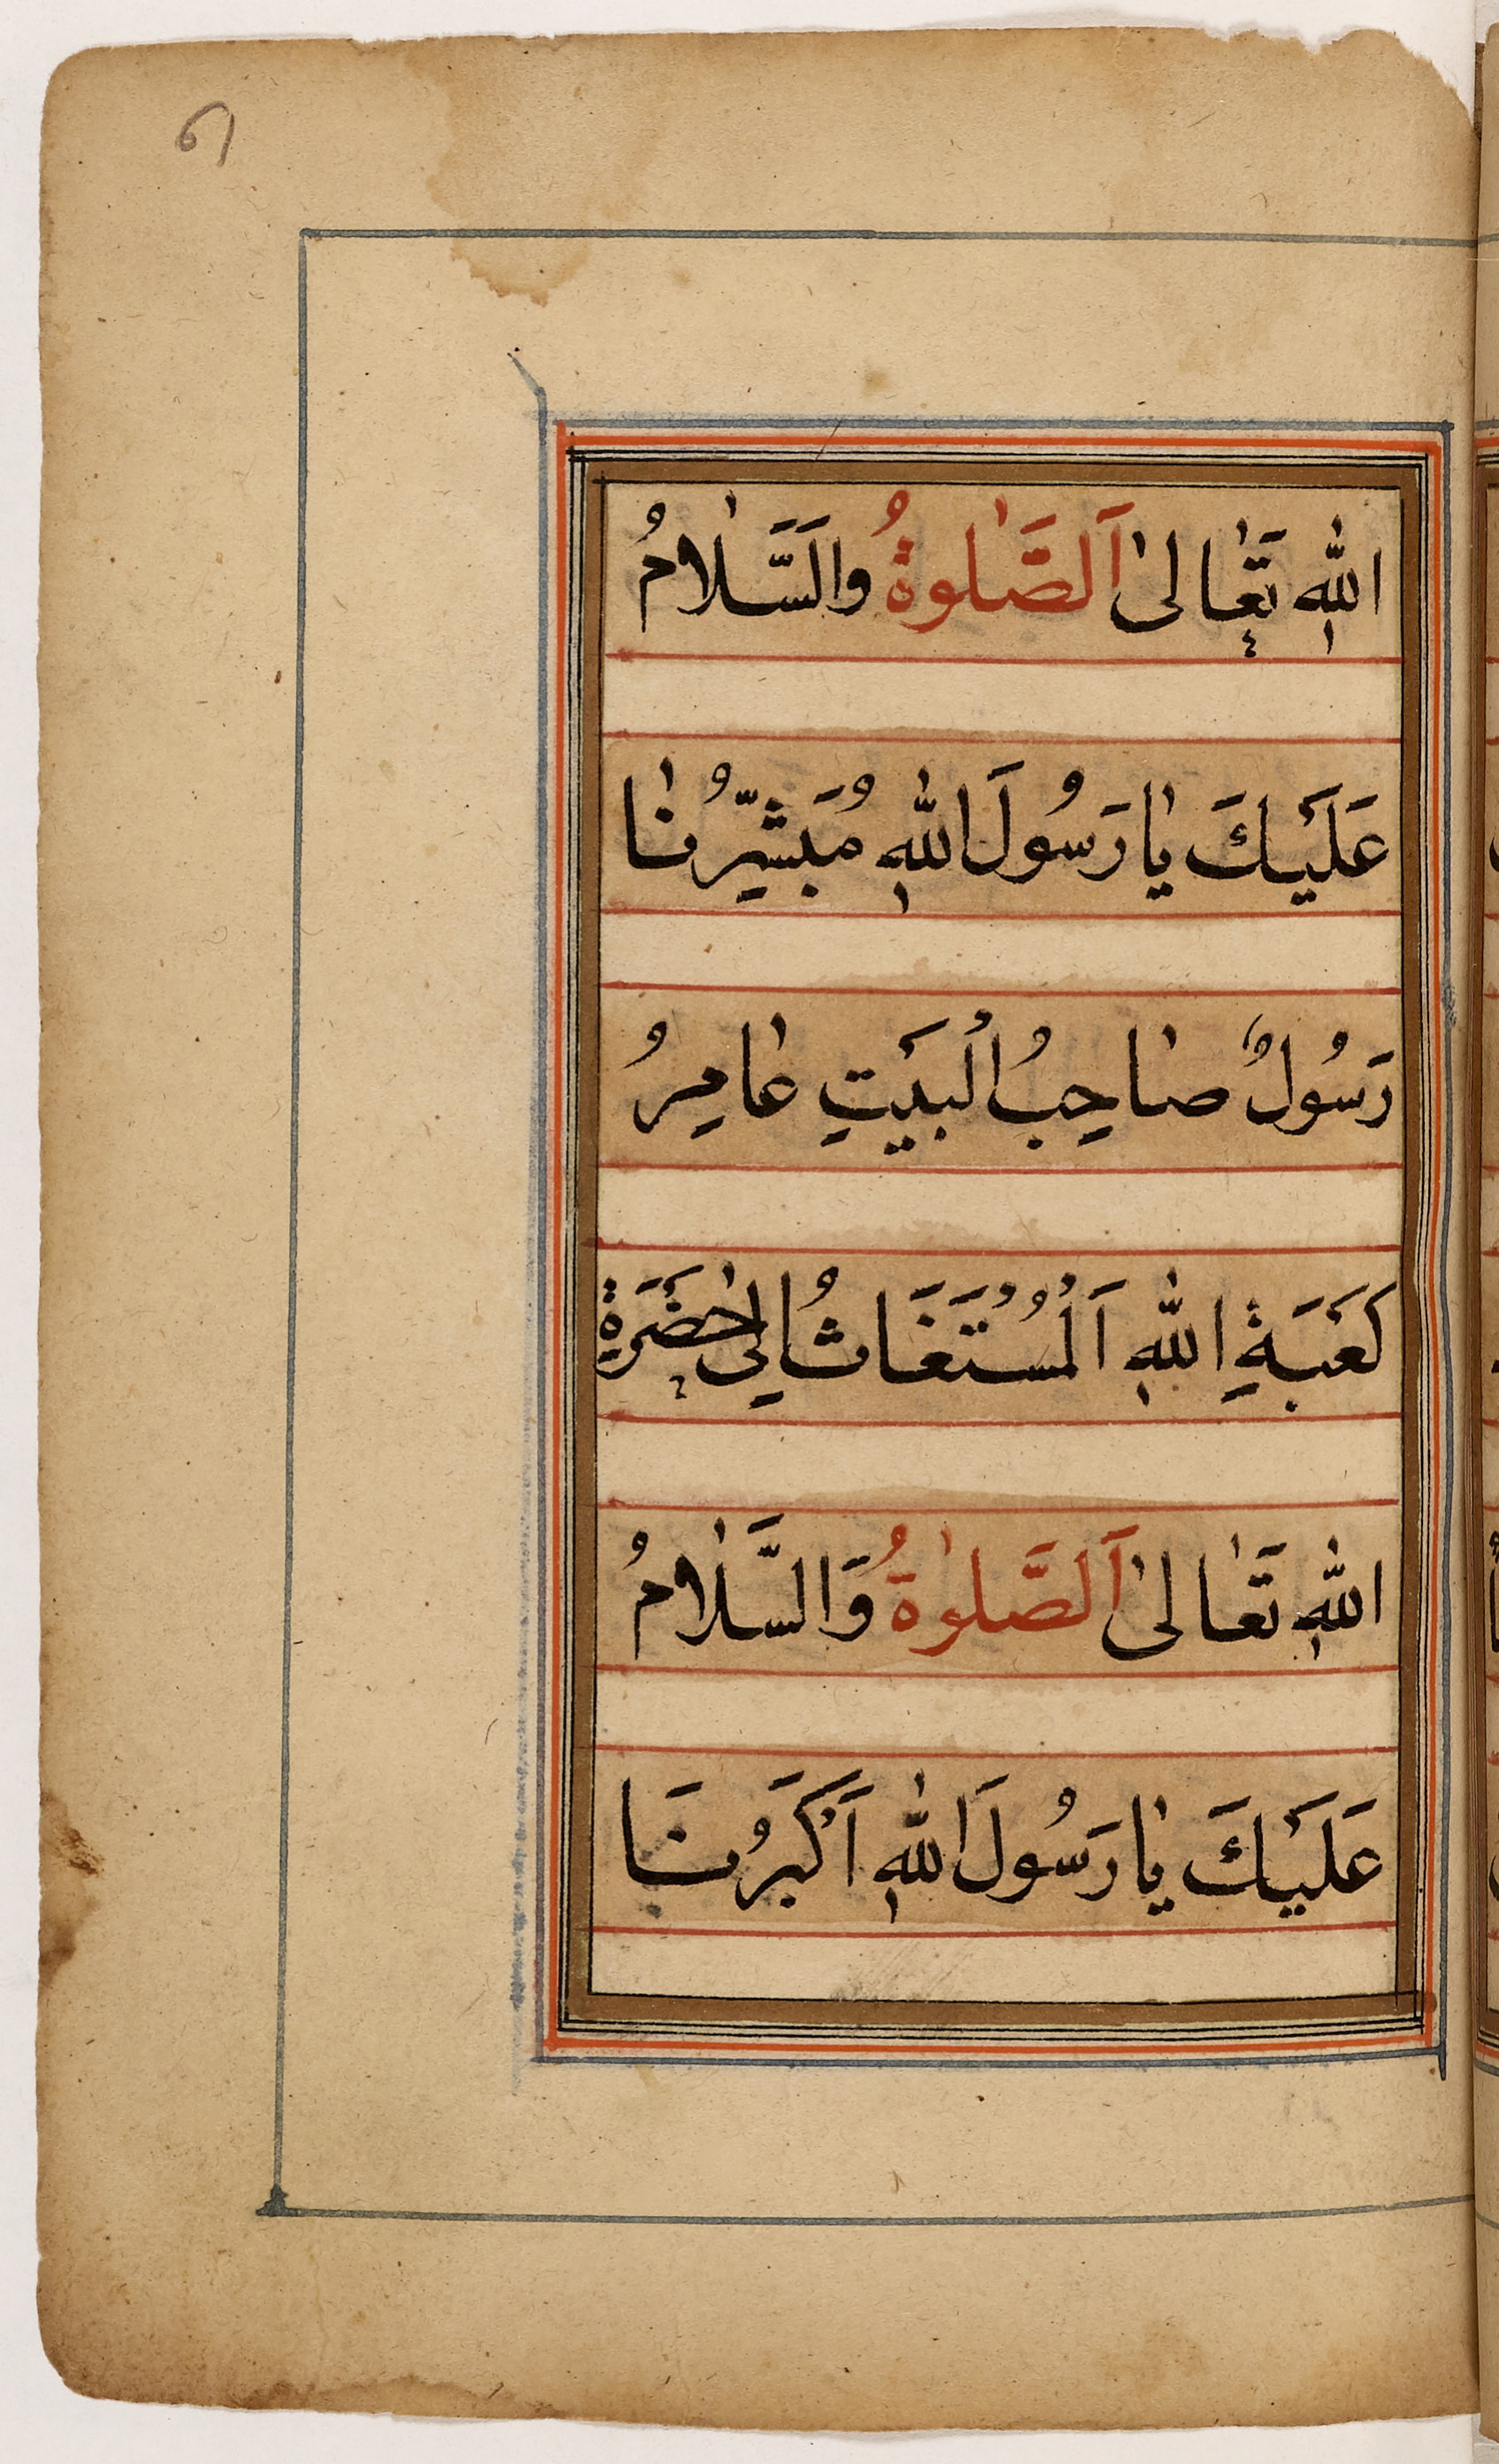 اللهِ تَعَالىٰ اَلصَّلٰوةُ والَسَّلَامُ
عَلَيْكَ يَا رَسُولَ اللهِ مُبَشِّرُنَا
رَسُولٌ صَاحِبُ الْبَيْتِ عَامِرُ
كَعْبَةِ اللهِ اَلْمُسْتَغَاثُ اِلىٰ حَضْرَةِ
اللهِ تَعَالىٰ اَلصَّلٰوةُ وَالسَّلَامُ
عَلَيْكَ يَا رَسُولَ اللهِ اَكْبَرُنَا